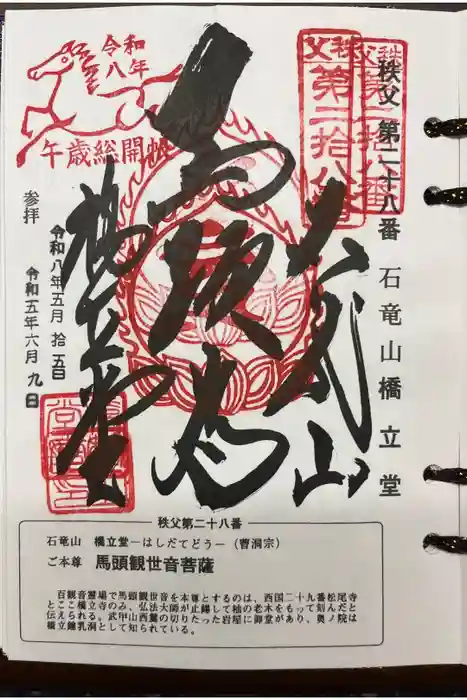 秩父 第二十八番 石竜山橋立堂
秩父
第二拾八番
秩父
第二拾八番
石竜山
橋立堂
令和
八年
午歳総開帳
参拝
令和八年五月 拾五日
令和五年六月 九日
秩父第二十八番
石竜山 橋立堂―はしだてどう―(曹洞宗)
ご本尊 馬頭観世音菩薩
百観音霊場で馬頭観世音を本尊とするのは、西国二十九番松尾寺
とここ橋立寺のみ、弘法大師が止錫して柚の老木をもって刻んだと
伝えられる。武甲山西麓の切りたった岩屋に御堂があり、奥ノ院は
橋立鍾乳洞として知られている。